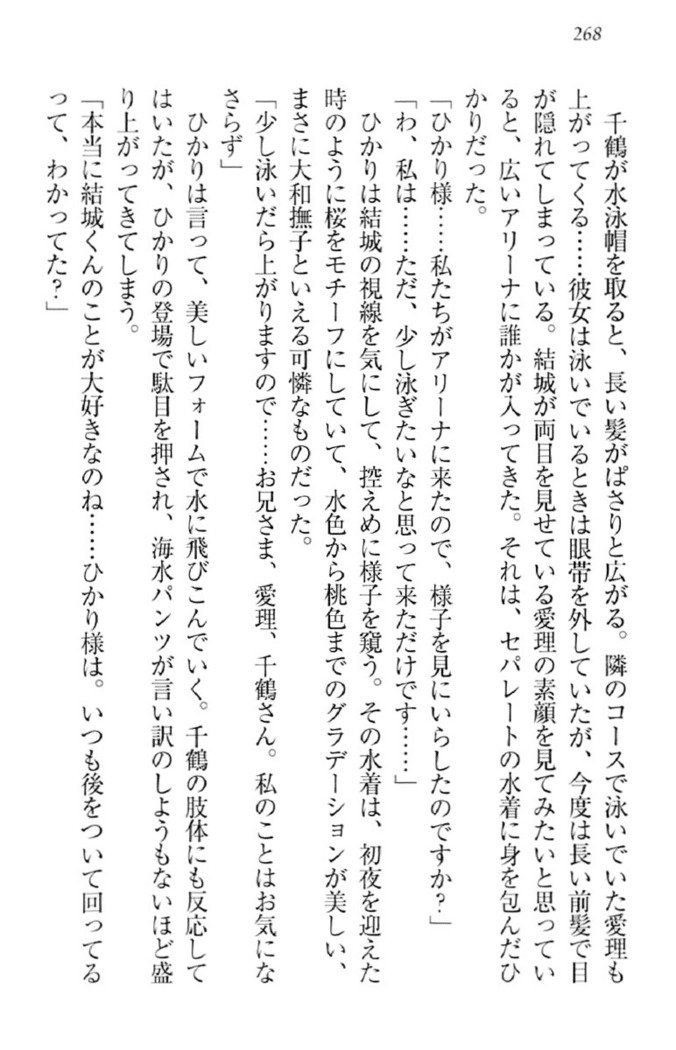 268
千鶴が水泳帽を取ると、長い髪がぱさりと広がる。隣のコースで泳いでいた愛理も
上がってくる……彼女は泳いでいるときは眼帯を外していたが、今度は長い前髪で目
が隠れてしまっている。結城が両目を見せている愛理の素顔を見てみたいと思ってい
ると、広いアリーナに誰かが入ってきた。それは、セパレートの水着に身を包んだひ
かりだった。
「ひかり様……私たちがアリーナに来たので、様子を見にいらしたのですか?」
「わ、私は……ただ、少し泳ぎたいなと思って来ただけです……」
ひかりは結城の視線を気にして、控えめに様子を窺う。その水着は、初夜を迎えた
時のように桜をモチーフにしていて、水色から桃色までのグラデーションが美しい、
まさに大和撫子といえる可憐なものだった。
「少し泳いだら上がりますので……お兄さま、愛理、千鶴さん。私のことはお気にな
さらず」
ひかりは言って、美しいフォームで水に飛びこんでいく。千鶴の肢体にも反応して
はいたが、ひかりの登場で駄目を押され、海水パンツが言い訳のしようもないほど盛
り上がってきてしまう。
「本当に結城くんのことが大好きなのね……ひかり様は。いつも後をついて回ってる
って、わかってた?」